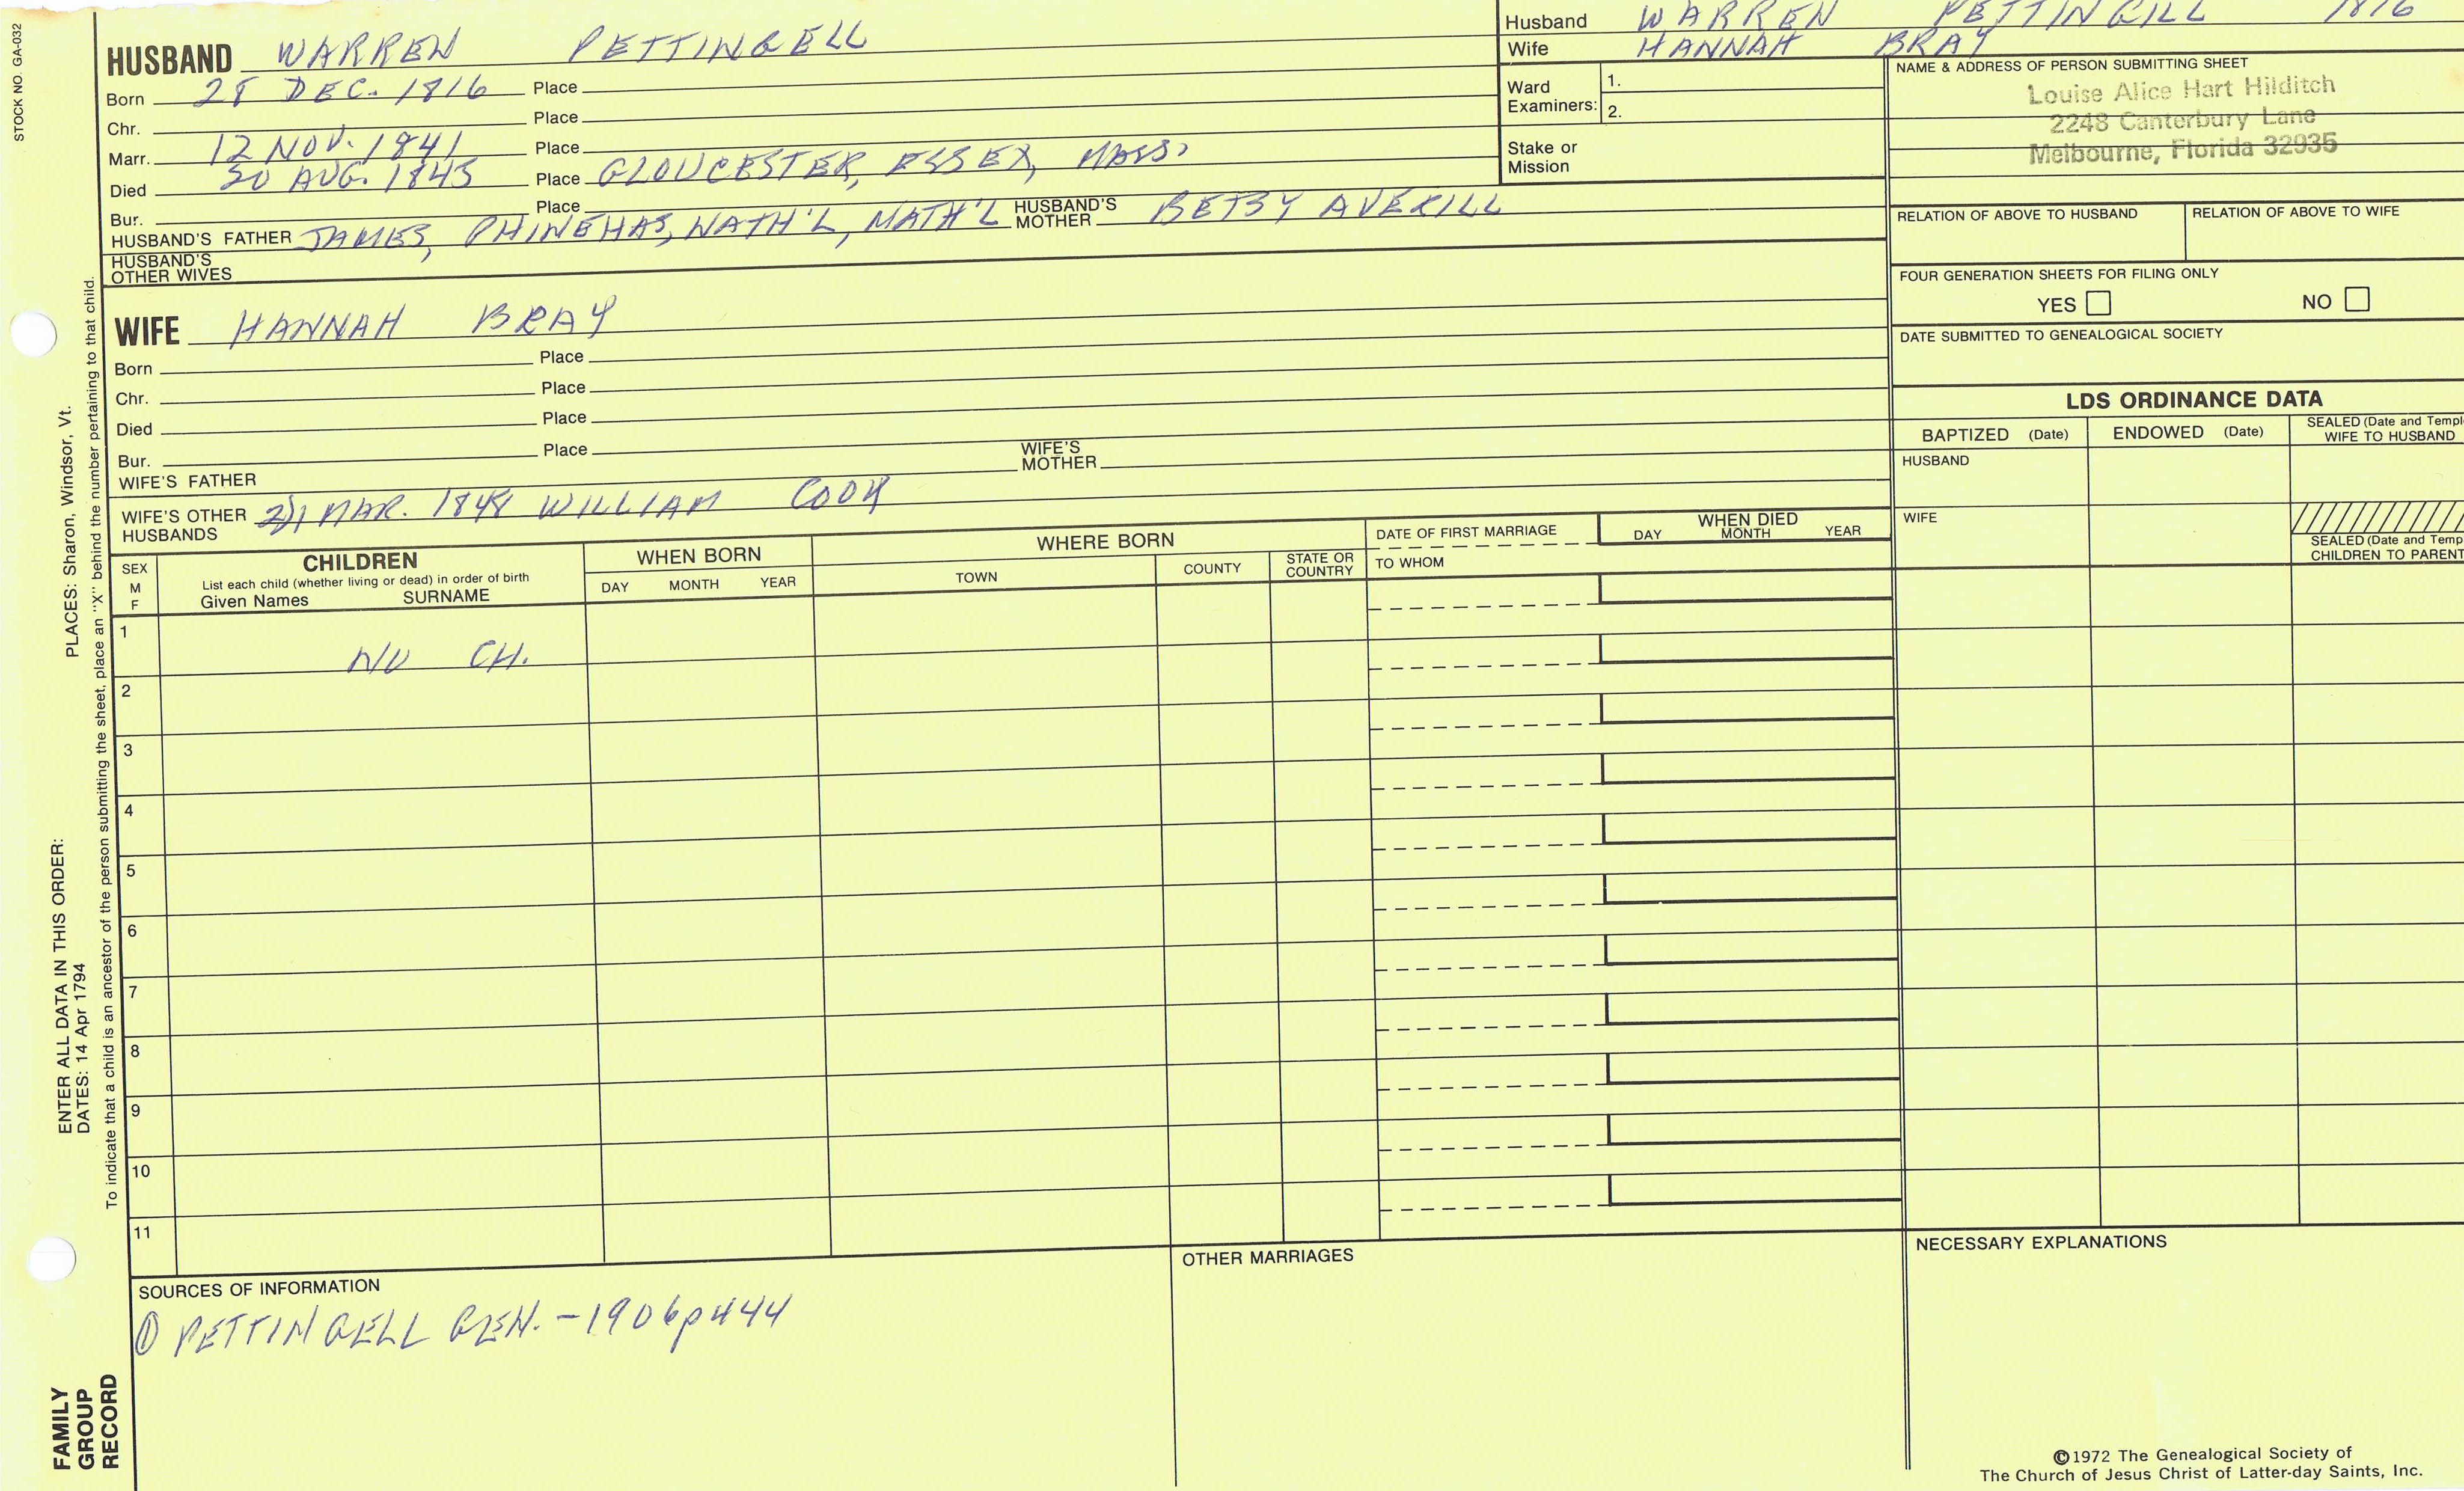 STOCK NO. GA-032
HUSBAND WARREN PETTINGELL
Born 28 DEC. 1816 Place
Chr. Place
Marr. 12 NOV. 1841 Place
Died 20 AUG. 1845 Place GLOUCESTER, ESSEX, MASS.
Bur. Place
HUSBAND'S FATHER JAMES, PHINEHAS, NATH'L, MATH'L HUSBAND'S MOTHER BETSY AVERILL
HUSBAND'S OTHER WIVES
Husband WARREN PETTINGILL 1816
Wife HANNAH BRAY
Ward Examiners: 1.
2.
Stake or Mission
NAME & ADDRESS OF PERSON SUBMITTING SHEET
Louise Alice Hart Hilditch
2248 Canterbury Lane
Melbourne, Florida 32935
RELATION OF ABOVE TO HUSBAND RELATION OF ABOVE TO WIFE
FOUR GENERATION SHEETS FOR FILING ONLY
YES NO
DATE SUBMITTED TO GENEALOGICAL SOCIETY
WIFE HANNAH BRAY
Born Place
Chr. Place
Died Place
Bur. Place
WIFE'S FATHER WIFE'S MOTHER
WIFE'S OTHER HUSBANDS MAR. 1848 WILLIAM COOK
LDS ORDINANCE DATA
BAPTIZED (Date) ENDOWED (Date) SEALED (Date and Templ
WIFE TO HUSBAND
HUSBAND
WIFE
SEALED (Date and Temp
CHILDREN TO PARENT
SEX
M
F
CHILDREN
List each child (whether living or dead) in order of birth
Given Names SURNAME
WHEN BORN
DAY MONTH YEAR
WHERE BORN
TOWN COUNTY STATE OR COUNTRY
DATE OF FIRST MARRIAGE
TO WHOM
WHEN DIED
DAY MONTH YEAR
1 NO CH.
2
3
4
5
6
7
8
9
10
11
SOURCES OF INFORMATION
① PETTINGELL GEN. - 1906 p444
OTHER MARRIAGES
NECESSARY EXPLANATIONS
ENTER ALL DATA IN THIS ORDER:
DATES: 14 Apr 1794
PLACES: Sharon, Windsor, Vt.
To indicate that a child is an ancestor of the person submitting the sheet, place an "X" behind the number pertaining to that child.
FAMILY
GROUP
RECORD
©1972 The Genealogical Society of
The Church of Jesus Christ of Latter-day Saints, Inc.